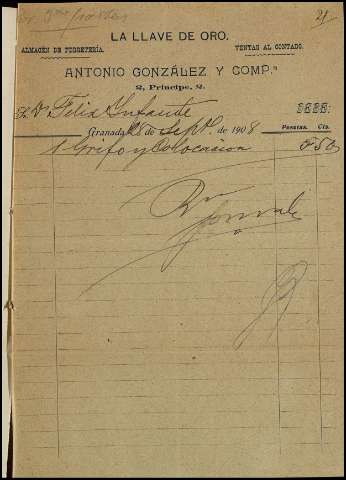 21
LA LLAVE DE ORO.
ALMACÉN DE FERRETERÍA. VENTAS AL CONTADO.
ANTONIO GONZÁLEZ Y COMP.ª
2, Príncipe, 2.
S. Dn Felix Infante
Granada 28 de Sepb. de 1908 Pesetas. Cts.
1 Grifo y colocacion 50